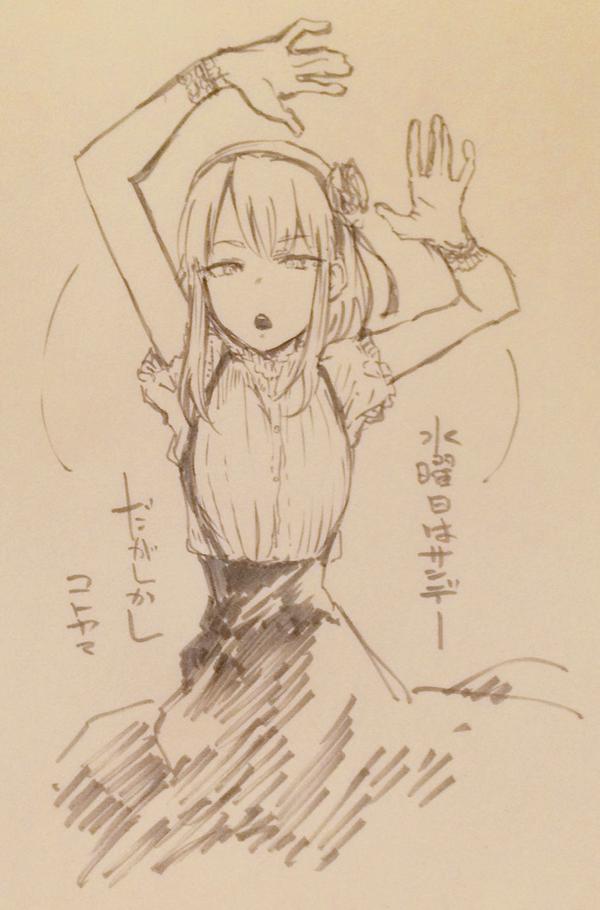 水曜日はサンデー
だがしかし
コトヤマ